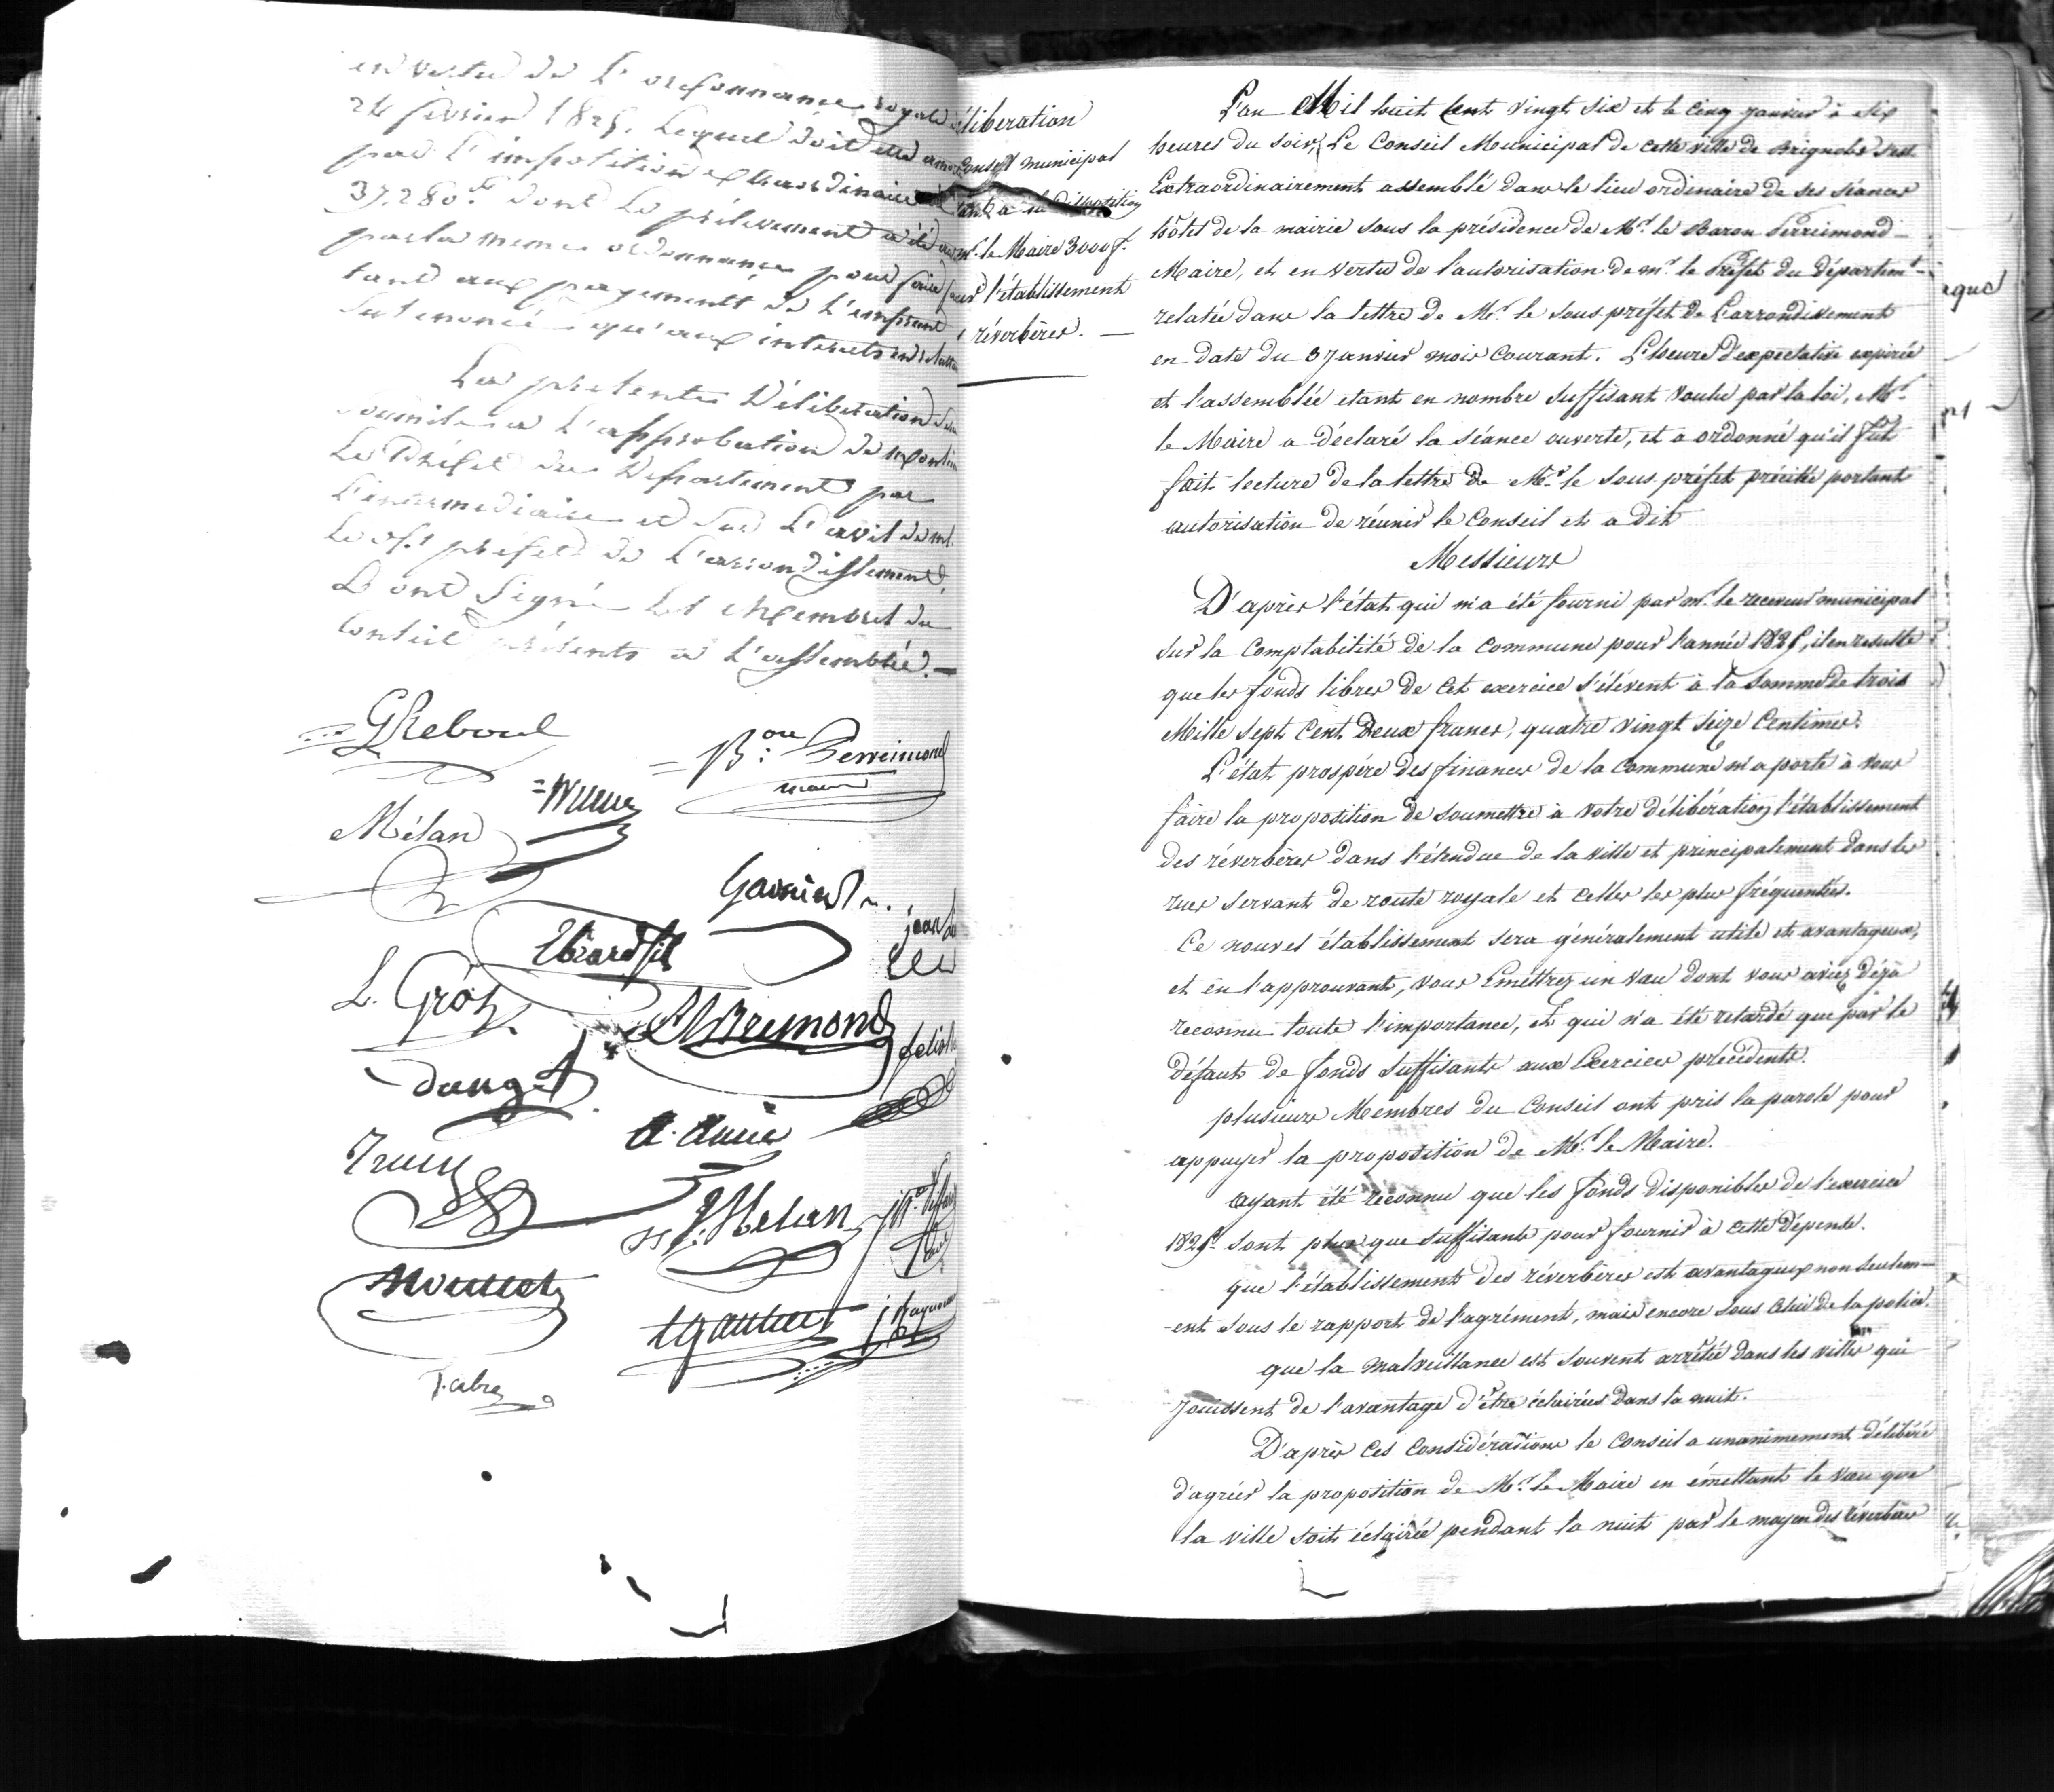 en vertu de l'ordonnance royale
24 février 1825. lequel doit etre
par l'imposition extraordinaire
37,280f. dont le prélevement a été
par la meme ordonnance pour faire
tant aux payements de l'emprunt
susenoncé qu'aux interets en
La presente Déliberation sera
soumise a l'approbation de
Le Préfet du Département par
l'intermediaire et sur l'avis de mr.
le s/s préfet de l'arrondissement.
Et ont Signé les Membres du
Conseil présents a l'assemblée. —
GReboul
Bon Perreimond
maire
Mélan
Garnier
Ebrard fils
L. Gros
ABremond
felix
dauget
a. amic
J. Melan
Mouttet
tgautier
j Raynouard
Fabre
délibération
Conseil municipal
mr. le Maire 3000f.
pour l'établissement
réverbères. —
L'an Mil huit Cent vingt six et le cinq Janvier à six
heures du soir, Le Conseil Municipal de cette ville de Brignoles s'est
Extraordinairement assemblé dans le lieu ordinaire de ses séances
hôtel de la mairie sous la présidence de Mr. le Baron Perreimond —
Maire, et en vertu de l'autorisation de mr. le Préfet du départemt. —
relatée dans la lettre de Mr. le sous préfet de L'arrondissement
en date du 3 Janvier mois courant. L'heure d'expectative expirée
et l'assemblée etant en nombre suffisant voulu par la loi, Mr.
le Maire a déclaré la séance ouverte, et a ordonné qu'il fut
fait lecture de la lettre de Mr. le sous préfet précitée portant
autorisation de réunir le Conseil et a dit
Messieurs
D'après l'état qui m'a été fourni par mr. le receveur municipal
sur la Comptabilité de la commune pour l'année 1825, il en resulte
que les fonds libres de cet exercice s'élèvent à la somme de trois
Mille sept Cent Deux francs, quatre vingt seize Centimes.
L'état prospère des finances de la commune m'a porté à vous
faire la proposition de soumettre à votre délibération l'établissement
des réverbères dans l'étendue de la ville et principalement dans les
rues servant de route royale et celles les plus fréquentées.
Ce nouvel établissement sera généralement utile et avantageux,
et en l'approuvant, vous Emettrez un vœu dont vous aviez déjà
reconnu toute l'importance, et qui n'a été retardé que par le
défaut de fonds suffisants aux Exercices précédents.
plusieurs Membres du Conseil ont pris la parole pour
appuyer la proposition de Mr. le Maire.
ayant été reconnu que les fonds disponibles de l'exercice
1825 sont plus que suffisants pour fournir à cette dépense.
que l'établissement des réverbères est avantageux non seulem-
-ent sous le rapport de l'agrément, mais encore sous celui de la police.
que la malveillance est souvent arrêtée dans les villes qui
jouissent de l'avantage d'être éclairées dans la nuit.
D'après ces considérations le Conseil a unanimement délibéré
d'agréer la proposition de Mr. le Maire en émettant le vœu que
la ville soit éclairée pendant la nuit par le moyen des réverbères